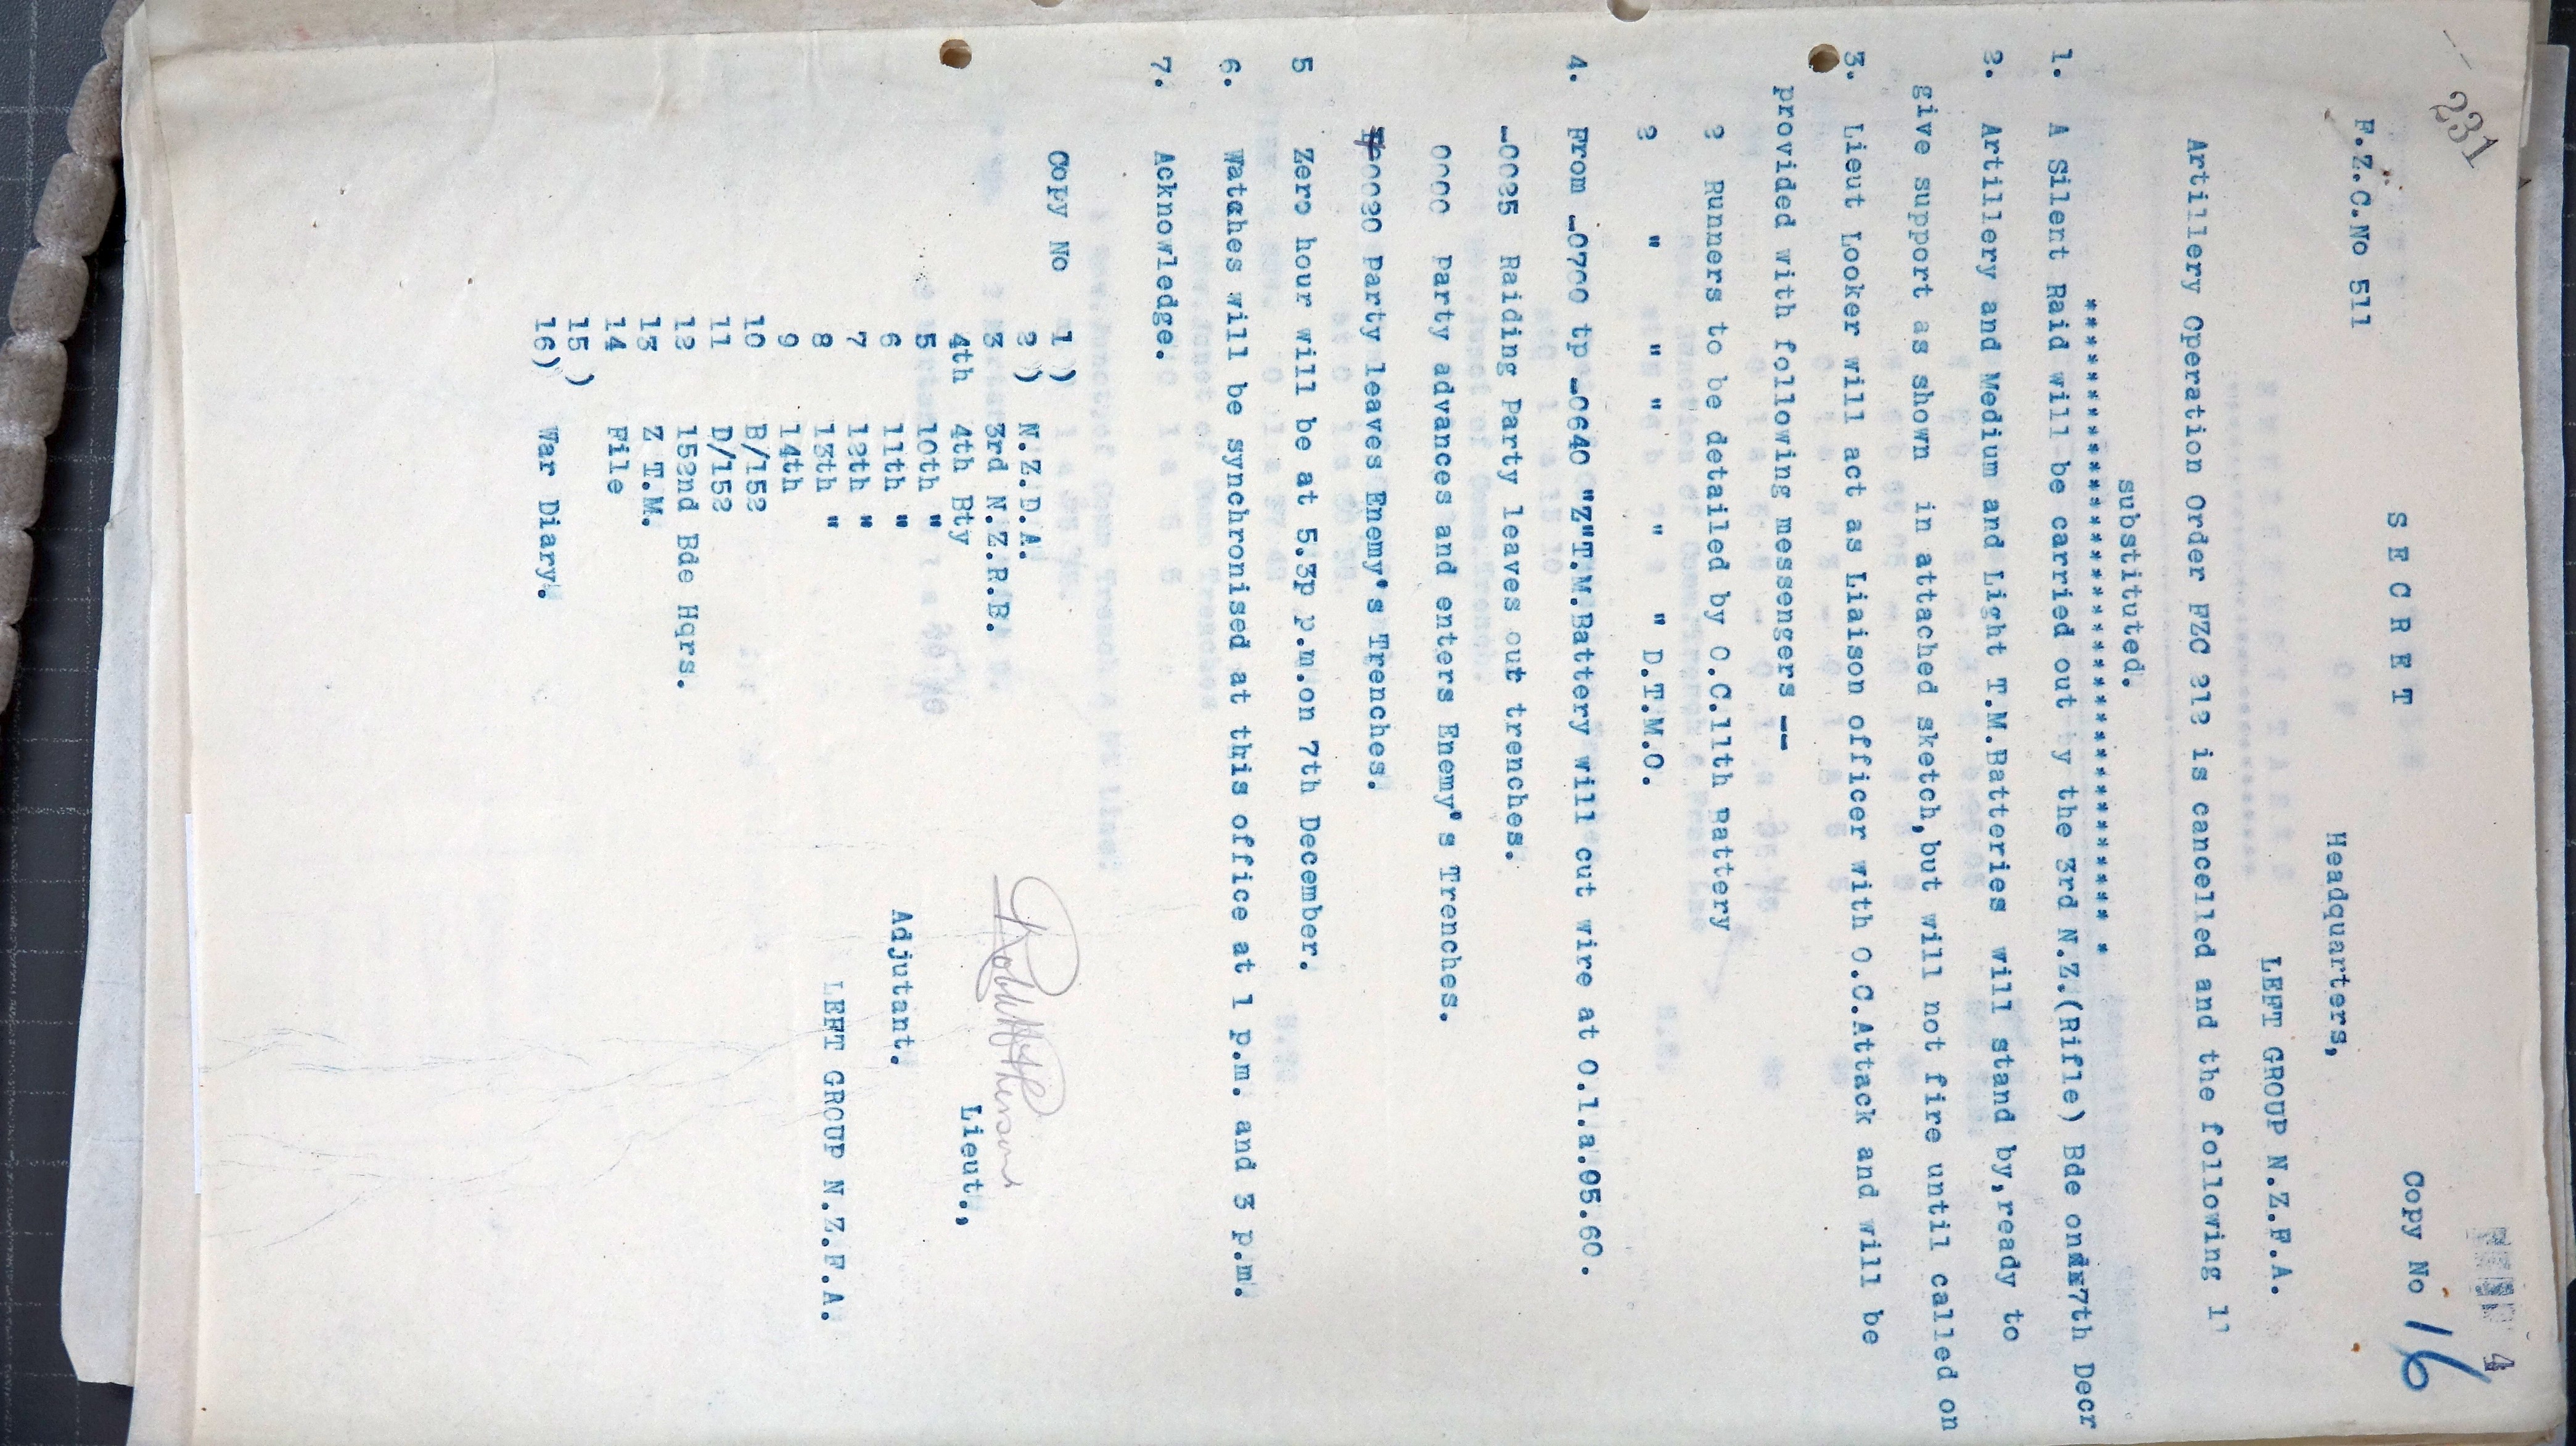 231
4
S E C R E T
Copy No 16
F.Z.C.No 511
Headquarters,
LEFT GROUP N.Z.F.A.
Artillery Operation Order FZC 212 is cancelled and the following
substituted.
************************************ *
1. A Silent Raid will be carried out y the 3rd N.Z.(Rifle) Bde on 7th Decr
2. Artillery and Medium and Light T.M.Batteries will stand by,ready to
give support as shown in attached sketch,but will not fire until called on
3. Lieut Looker will act as Liaison officer with O.C.Attack and will be
provided with following messengers --
2 Runners to be detailed by O.C.11th Battery
2 " " " " " D.T.M.O.
4. From -0700 tp -0640 "Z"T.M.Battery will cut wire at O.1.a.05.60.
-0025 Raiding Party leaves out trenches.
0000 Party advances and enters Enemy's Trenches.
0020 Party leaves Enemy's Trenches.
5 Zero hour will be at 5.3p p.m.on 7th December.
6. Watches will be synchronised at this office at 1 p.m. and 3 p.m.
7. Acknowledge.
Lieut.,
Adjutant.
LEFT GROUP N.Z.F.A.
Copy No 1 )
2 ) N.Z.D.A.
3 3rd N.Z.R.B.
4th 4th Bty
5 10th "
6 11th "
7 12th "
8 13th "
9 14th
10 B/152
11 D/152
12 152nd Bde Hqrs.
13 Z T.M.
14 File
15 )
16) War Diary.